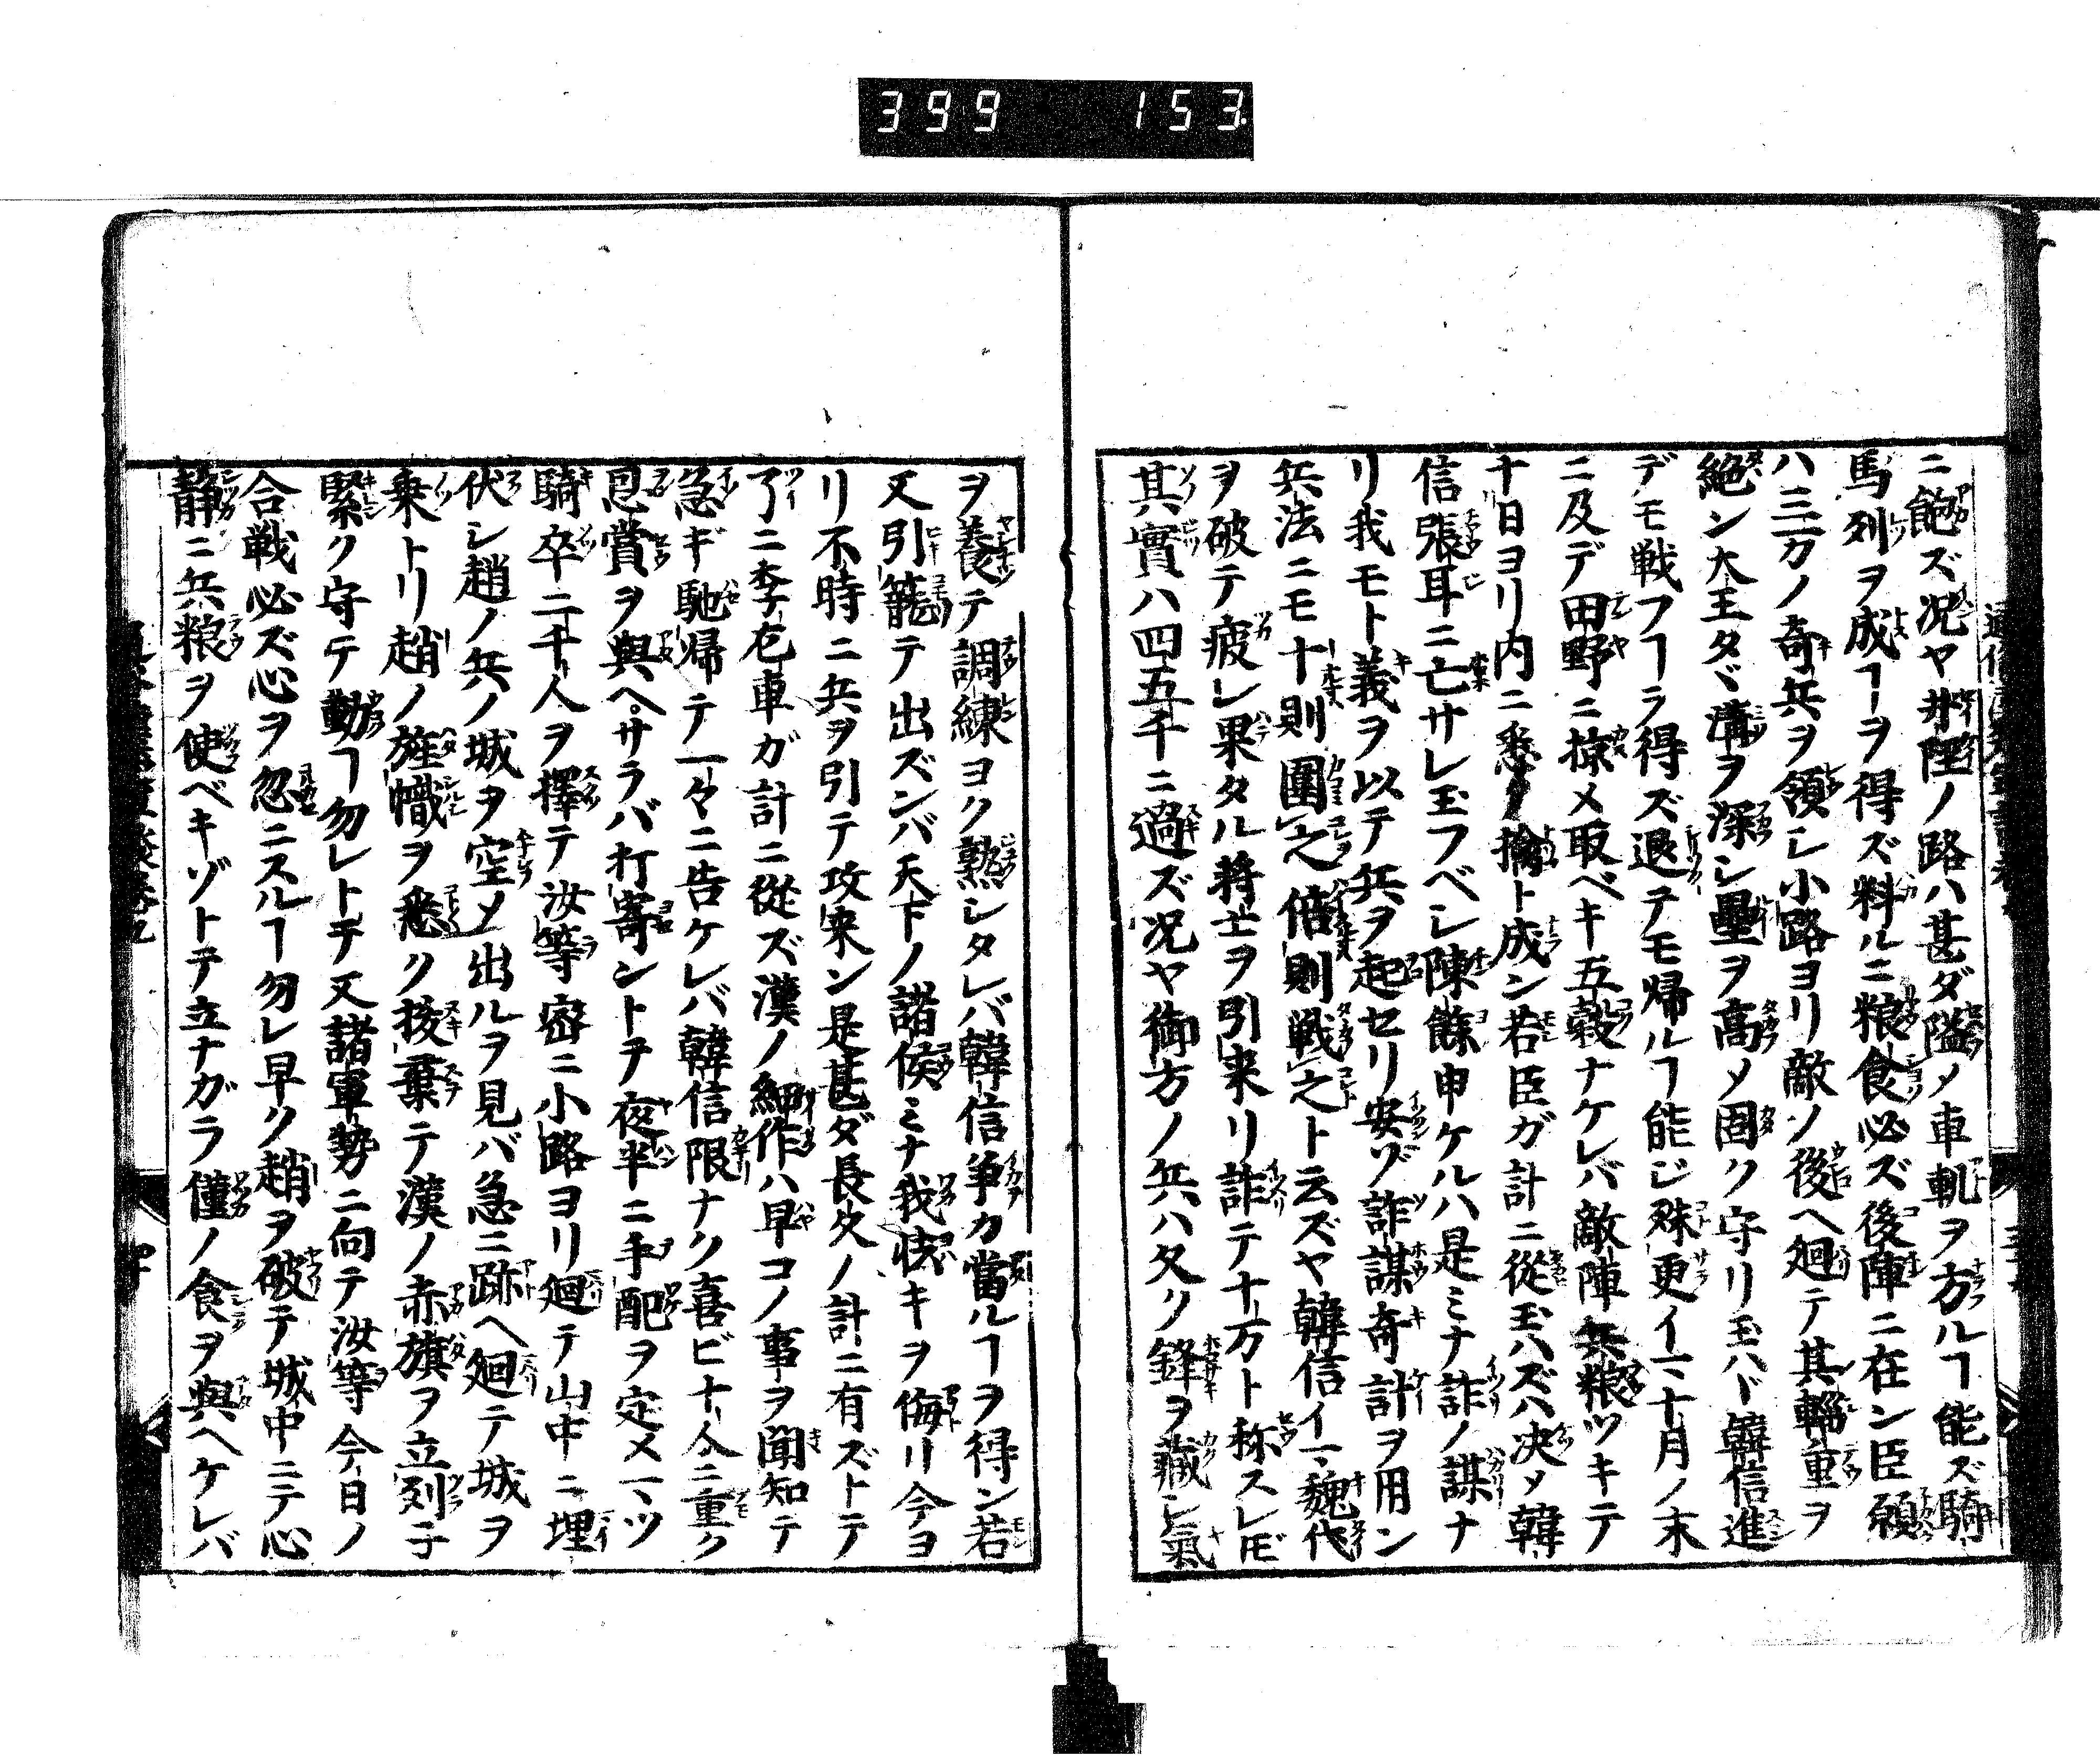 399 153
ニ飽ズ况ヤ井陘ノ路ハ甚ダ隘ノ車軌ヲ方ルヿ能ズ騎
馬列ヲ成ヿヲ得ズ料ルニ粮食必ズ後陣ニ在ン臣願
ハ三万ノ奇兵ヲ領シ小路ヨリ敵ノ後ヘ廻テ其輜重ヲ
絶ン大王タヾ溝ヲ深シ壘ヲ高メ固ク守リ玉ハヾ韓信進
デモ戦フヿラ得ズ退テモ帰ルヿ能ジ殊更イマ十月ノ末
ニ及デ田野ニ掠メ取ベキ五穀ナケレバ敵陣兵粮ツキテ
十日ヨリ内ニ悉ク擒ト成ン若臣ガ計ニ從玉ハズバ决メ韓
信張耳ニ亡サレ玉フベシ陳餘申ケルハ是ミナ詐ノ謀ナ
リ我モト義ヲ以テ兵ヲ起セリ安ゾ詐謀奇計ヲ用ン
兵法ニモ十則圍之倍則戦之ト云ズヤ韓信イマ魏代
ヲ破テ疲レ果タル将士ヲ引来リ詐テ十万ト称スレ𪜈
其實ハ四五千ニ過ズ况ヤ御方ノ兵ハ久ク鋒ヲ藏シ氣
ヲ養テ調練ヨク熟シタレバ韓信争カ當ルヿヲ得ン若
又引籠テ出ズンバ天下ノ諸侯ミナ我怯キヲ侮リ今ヨ
リ不時ニ兵ヲ引テ攻来ン是甚ダ長久ノ計ニ有ズトテ
了ニ李左車ガ計ニ從ズ漢ノ細作ハ早コノ事ヲ聞知テ
急ギ馳帰テ一々ニ告ケレバ韓信限ナク喜ビ十人ニ重ク
恩賞ヲ與ヘサラバ打寄ントテ夜半ニ手配ヲ定メ一ツ
騎卒二千人ヲ擇テ汝等密ニ小路ヨリ廻テ山中ニ埋
伏シ趙ノ兵ノ城ヲ空メ出ルヲ見バ急ニ跡ヘ廻テ城ヲ
乗トリ趙ノ旌幟ヲ悉ク抜棄テ漢ノ赤旗ヲ立列子
緊ク守テ動ヿ勿レトテ又諸軍勢ニ向テ汝等今日ノ
合戦必ズ心ヲ忽ニスルヿ勿レ早ク趙ヲ破テ城中ニテ心
静ニ兵粮ヲ使ベキゾトテ立ナガラ僅ノ食ヲ與ヘケレバ